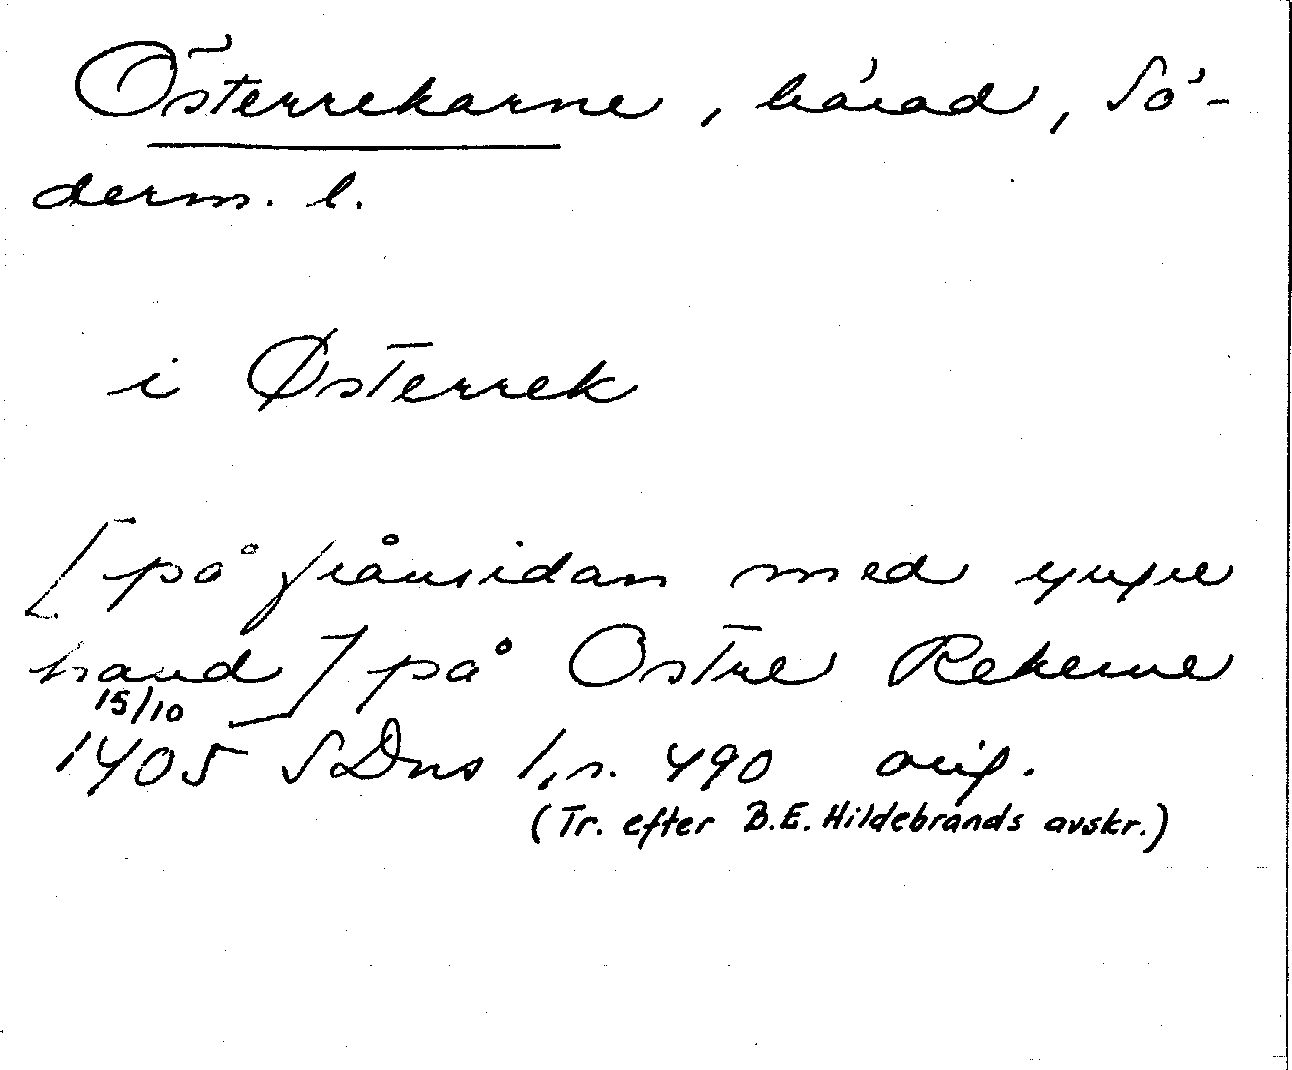 Österrekarne, härad, Sö-
derm. l.
i Østerrek
[på frånsidan med yngre
hand] på Ostre Rekerne
15/10
1405 SDns 1, s. 490 orig.
(Tr. efter B.E. Hildebrands avskr.)